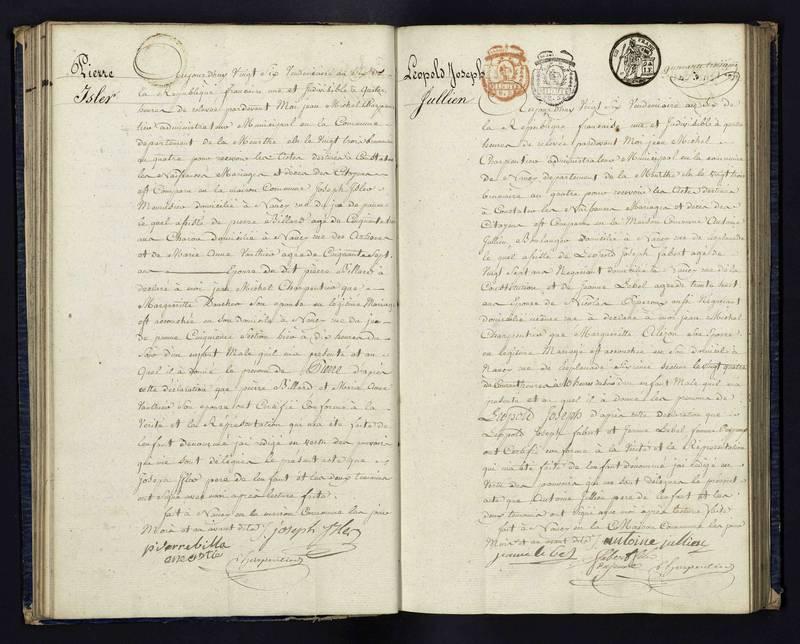 Pierre
Isler
Aujourdhuy Vingt Six Vendemiaire an Six de
la Republique francaise une et Indivisible à quatre
heures de relevée pardevant Moi jean Michel Charpen
tier administrateur Municipal en la Commune
departement de la Meurthe elu le Vingt trois brumaire
an quatre pour recevoir les actes destinés à Constater
les Naissances Mariages et deces des Citoyens
est Comparu en la maison Commune Joseph Isler
Menuisier domicilié à Nancy rue du jeu de paume
le quel assisté de pierre Billard agé de Cinquante
ans Charon domicilié à Nancy rue des artisans
et de Marie Anne Vauthier agée de Cinquante Sept
ans Epouse du dit pierre Billard à
declaré à moi jean Michel Charpentier que
Margueritte Son epouse en legitime Mariage
est accouchée en son domicile à Nancy rue du jeu
de paume Cinquieme Section hier à dix heures du
Soir d'un enfant Male qu'il m'a presenté et au
quel il a donné le prenom de Pierre d'apres
cette declaration que pierre Billard et Marie Anne
Vauthier Son epouse ont Certifié Conforme à la
Verité et la Representation qui m'a été faite de
l'enfant denommé j'ai redigé en vertu des pouvoirs
qui me sont délégués le présent acte que
Joseph Isler pere de l'enfant et les deux temoins
ont signé avec moi après lecture faite.
fait à Nancy en la maison Commune les jour
Mois et an avant dits. Joseph Isler
pierre billa
Charpentier
Leopold Joseph
Jullien
Aujourdhuy Vingt Six Vendemiaire an Six de
la Republique française une et Indivisible à quatre
heures de relevée pardevant Moi jean Michel
Charpentier administrateur Municipal en la commune
de Nancy departement de la Meurthe elu le Vingt trois
brumaire an quatre pour recevoir les Actes destinés
à Constater les Naissances Mariages et deces des
Citoyens est Comparu en la Maison Commune Antoine
Jullien Boulanger Domicilié à Nancy rue de l'esplanade
le quel assisté de Leopold Joseph agé de
Vingt Sept ans Negociant domicilié à Nancy rue de la
Constitution et de Jeanne Lebel agée de trente huit
ans Epouse de Nicolas aussi Negociant
domicilié même rue à declaré à moi jean Michel
Charpentier que Margueritte Son Epouse
en legitime Mariage est accouchée en Son domicile à
Nancy rue de l'esplanade Section le vingt quatre
du Courant à dix heures du soir d'un enfant Male qu'il m'a
presenté et au quel il a donné les prenoms de
Leopold Joseph d'après cette declaration que
Leopold Joseph et Jeanne Lebel femme
ont Certifié conforme à la Verité et la Représentation
qui m'a été faite de l'enfant denommé j'ai redigé en
Vertu des pouvoirs qui me sont délégués le present
acte que Antoine Jullien pere de l'enfant et les
deux temoins ont Signé avec moi après lecture faite
fait à Nancy en la Maison Commune les jour
Mois et an avant dits antoine jullien
jeanne lebel
Charpentier